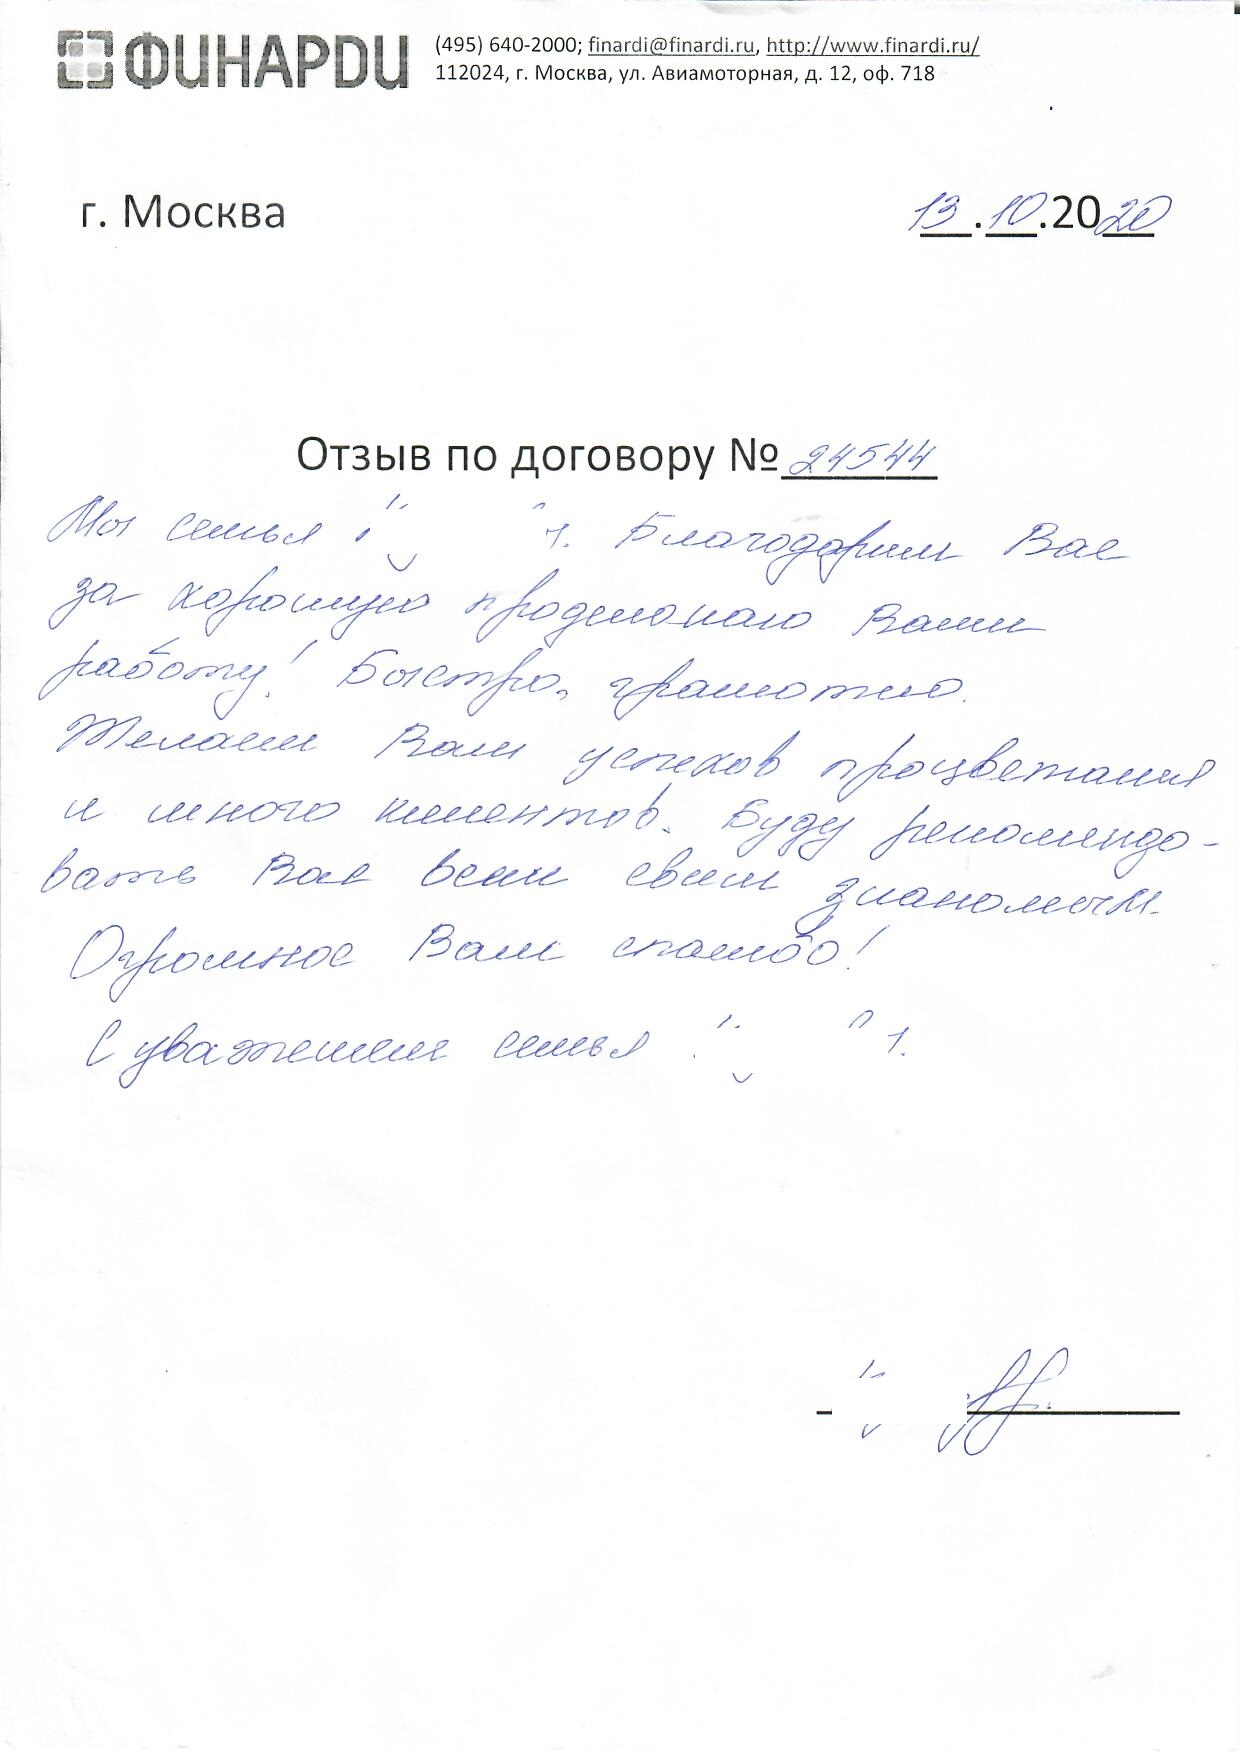 ФИНАРDИ
(495) 640-2000; finardi@finardi.ru, http://www.finardi.ru/
112024, г. Москва, ул. Авиамоторная, д. 12, оф. 718
г. Москва
13.10.2020
Отзыв по договору № 24544
Мы семья " " 1. Благодарим Вас
за хорошую проделоную Вами
работу! Быстро, грамотно.
Желаем Вам успехов процветания
и много клиентов. Буду рекомендо-
вать Вас всем своим знакомым.
Огромное Вам спасибо!
С уважением семья " " 1.